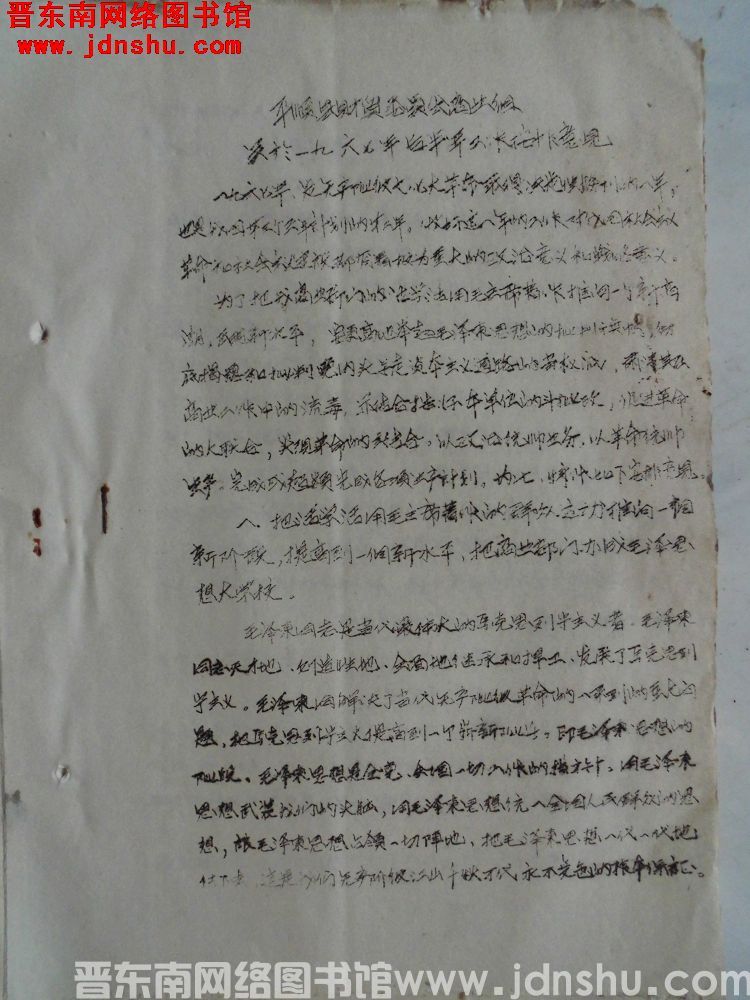 晋东南网络图书馆
www.jdnshu.com
平顺县财贸
关于一九六七年后半年工作安排意见
一九六七年,是无产阶级文化大革命取得决定
也是我国第三个五年计划的第二年。做好这一年的工作对我国社会主义
革命和社会主义建设都有着极为重大的政治意义和战略意义。
为了把我商业部门的活学活用毛主席著作推向一个新高
潮,新水平,高举毛泽东思想的批判
底揭 和批判党内头号走资本主义道路的当权派,肃清
商业工作中的流毒,本单位的斗批改,促进革命
的大联合,实现革命的三结合,以政治统帅业务,以革命统帅
完成或超额完成各项生产计划,
一、把活学活用毛主席著作的群众运动推向一个
新阶段,提高到一个新水平,把商业部门办成毛泽东思
想大学校。
毛泽东同志是当代最伟大的马克思列宁主义者。毛泽东
同志天才地、创造性地、全面地继承和捍卫、发展了马克思列
宁主义。毛泽东同解决了当代无产阶级革命的一系列的重大问
题,把马克思列宁主义提高到一个崭新的阶段,即毛泽东思想的
阶段。毛泽东思想是全党、全国一切工作的指导方针。用毛泽东
思想武装我们的头脑,用毛泽东思想统一全国人民群众的思
想,用毛泽东思想占领一切阵地,把毛泽东思想一代一代地
传下去,这是我们无产阶级江山千秋万代永不变色的根本保证。
晋东南网络图书馆www.jdnshu.com